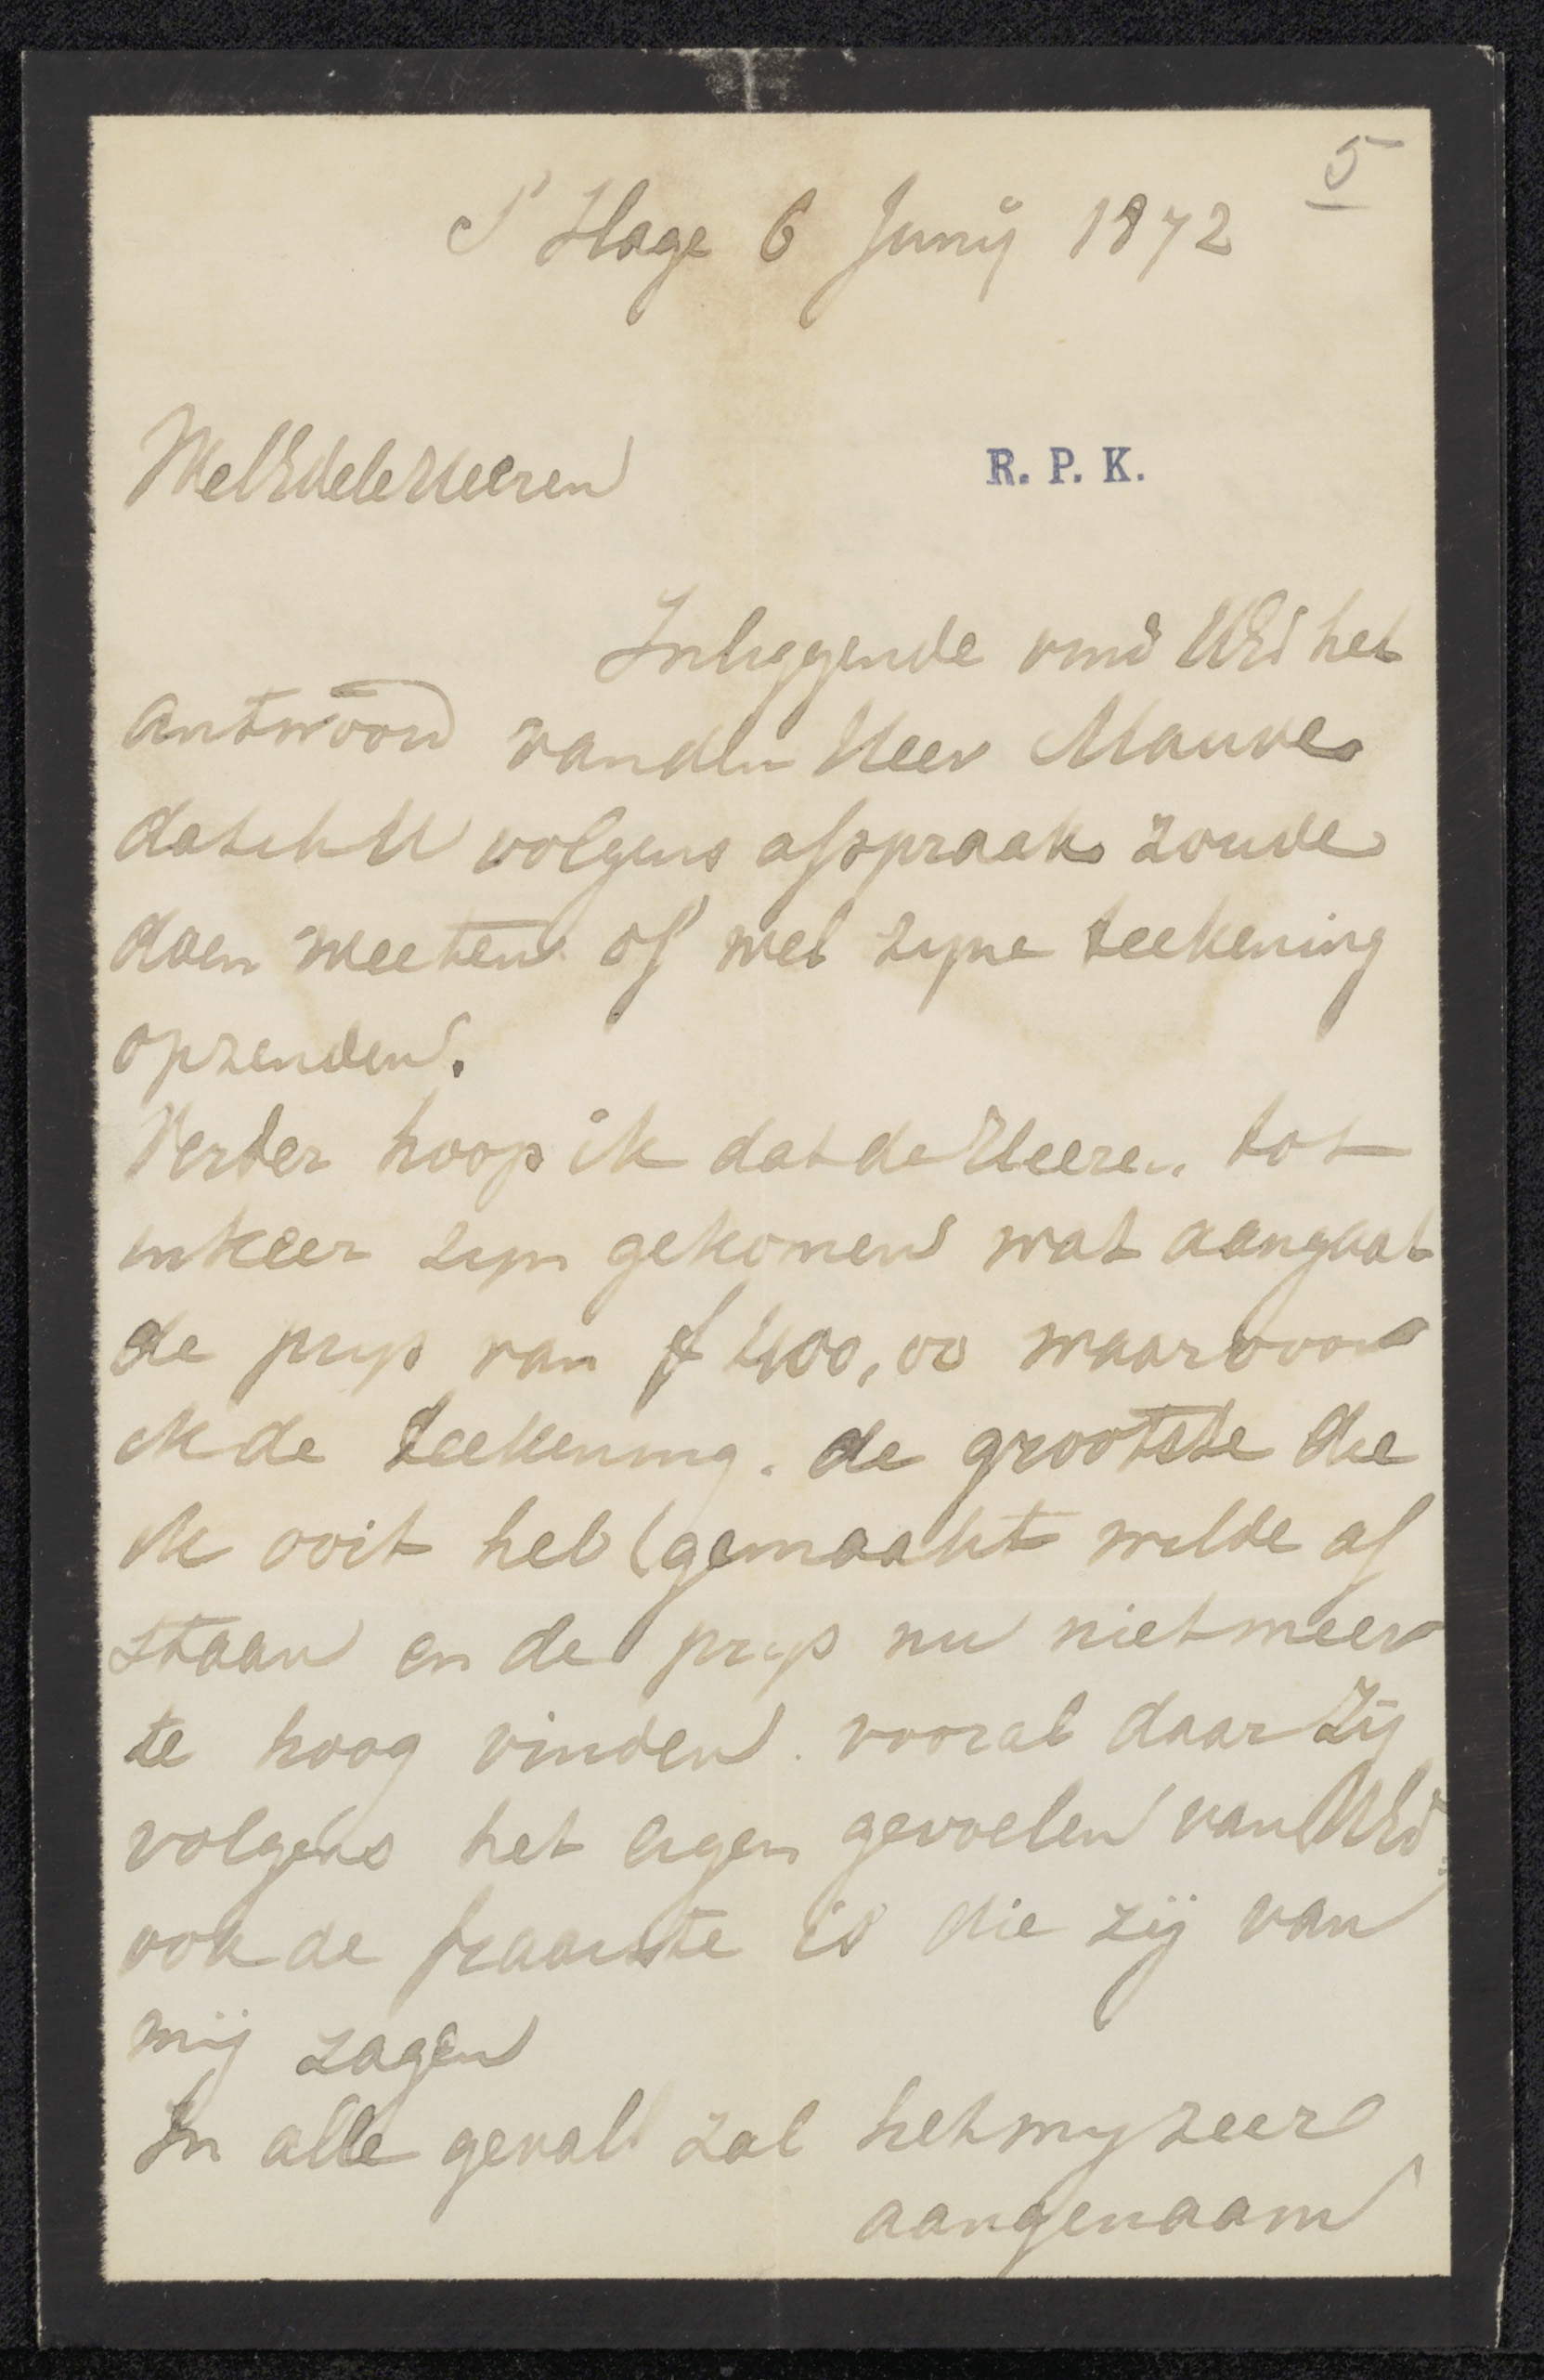 5
S' Hage 6 Junij 1872
WelEdele Heeren
R. P. K.
Inliggende vind UEd het
antwoord van den Heer Mauve
dat ik U volgens afspraak zoude
doen weeten of met zijne teekening
opzenden.
Verder hoop ik dat de Heeren tot
inkeer zijn gekomen wat aangaat
de prijs van f 400,00 waarvoor
ik de teekening. de grootste die
ik ooit heb gemaakt wilde af
staan en de prijs nu niet meer
te hoog vinden. vooral daar zij
volgens het eigen gevoelen van UEd
ook de fraaiste is die zij van
mij zagen
In alle gevall zal het mij zeer
aangenaam